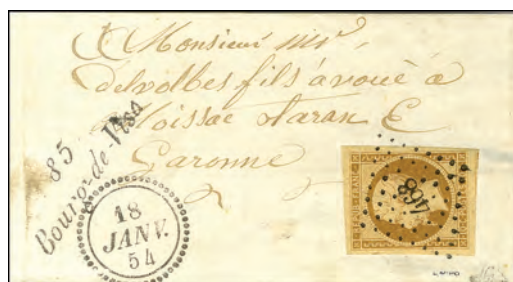 A Monsieur Mr
delvolbes fils avoué a
Moissac taran E
Garonne
85
Bourg-de-Visa
18
JANV.
54
468